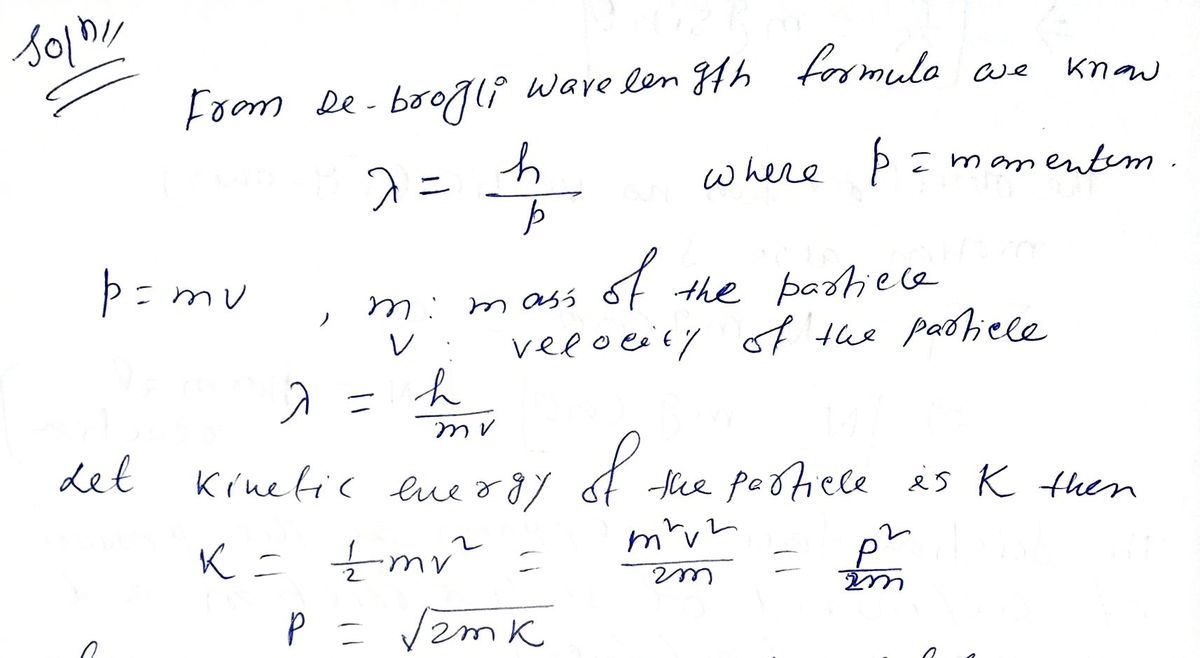 Solⁿ//
From De-brogli wavelength formula we know
λ = h/p where p = momentum.
p = mv , m : mass of the particle
v : velocity of the particle
λ = h/mv
Let kinetic energy of the particle is K then
K = 1/2 mv² = m²v²/2m = p²/2m
P = √2mK